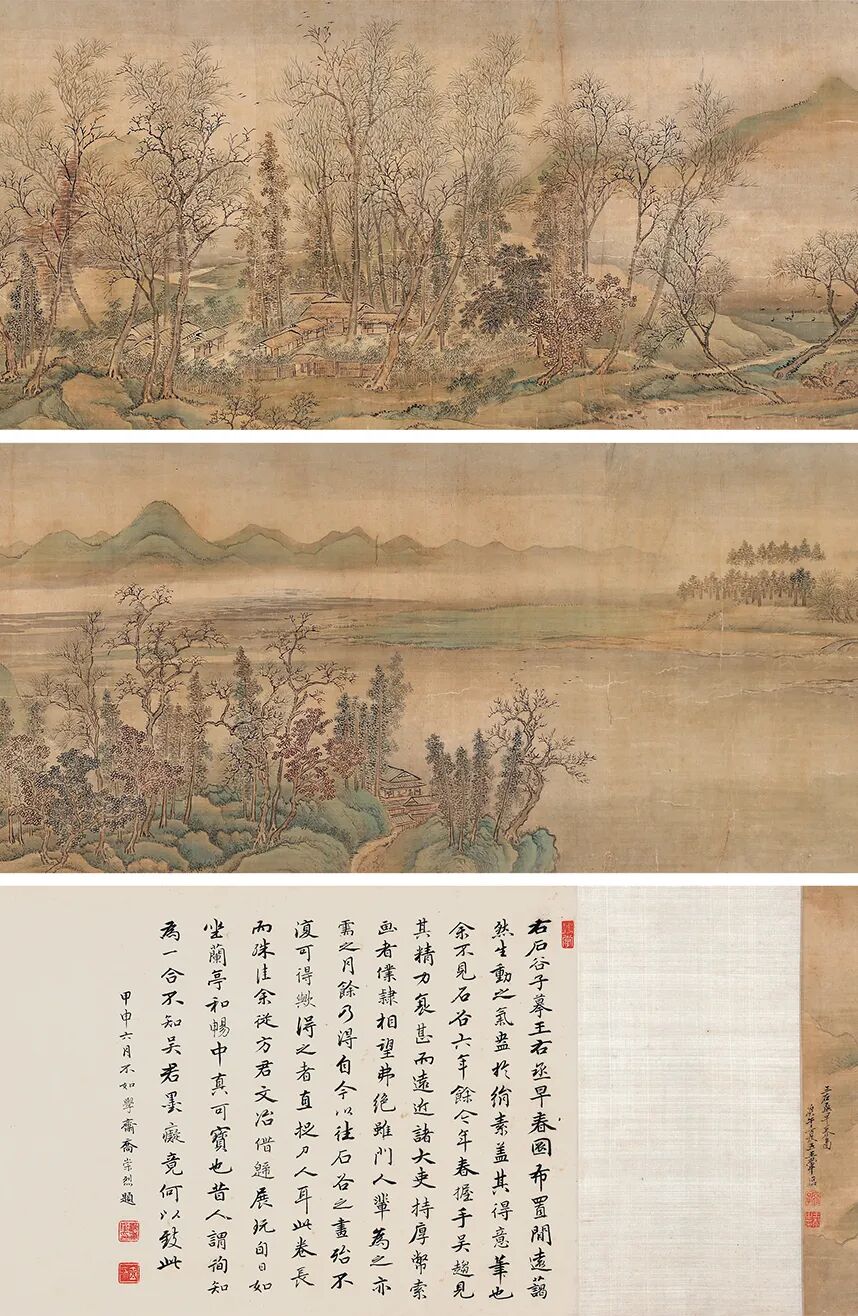 王右丞早春圖
右石谷子摹王右丞早春圖布置閒遠藹
然生動之氣盎於絹素蓋其得意筆也
余不見石谷六年餘今年春握手吳趨見
其精力衰甚而遠近諸大吏持厚幣索
画者僕隸相望弗絕雖門人輩為之亦
需之月餘乃得自今以往石谷之畫殆不
復可得歟得之者直捉刀人耳此卷長
而殊佳余從方君文冶借歸展玩旬日如
坐蘭亭和暢中真可寶也昔人謂詢知
為一合不知吳君墨癡竟何以致此
甲申六月不如學齋喬崇烈題